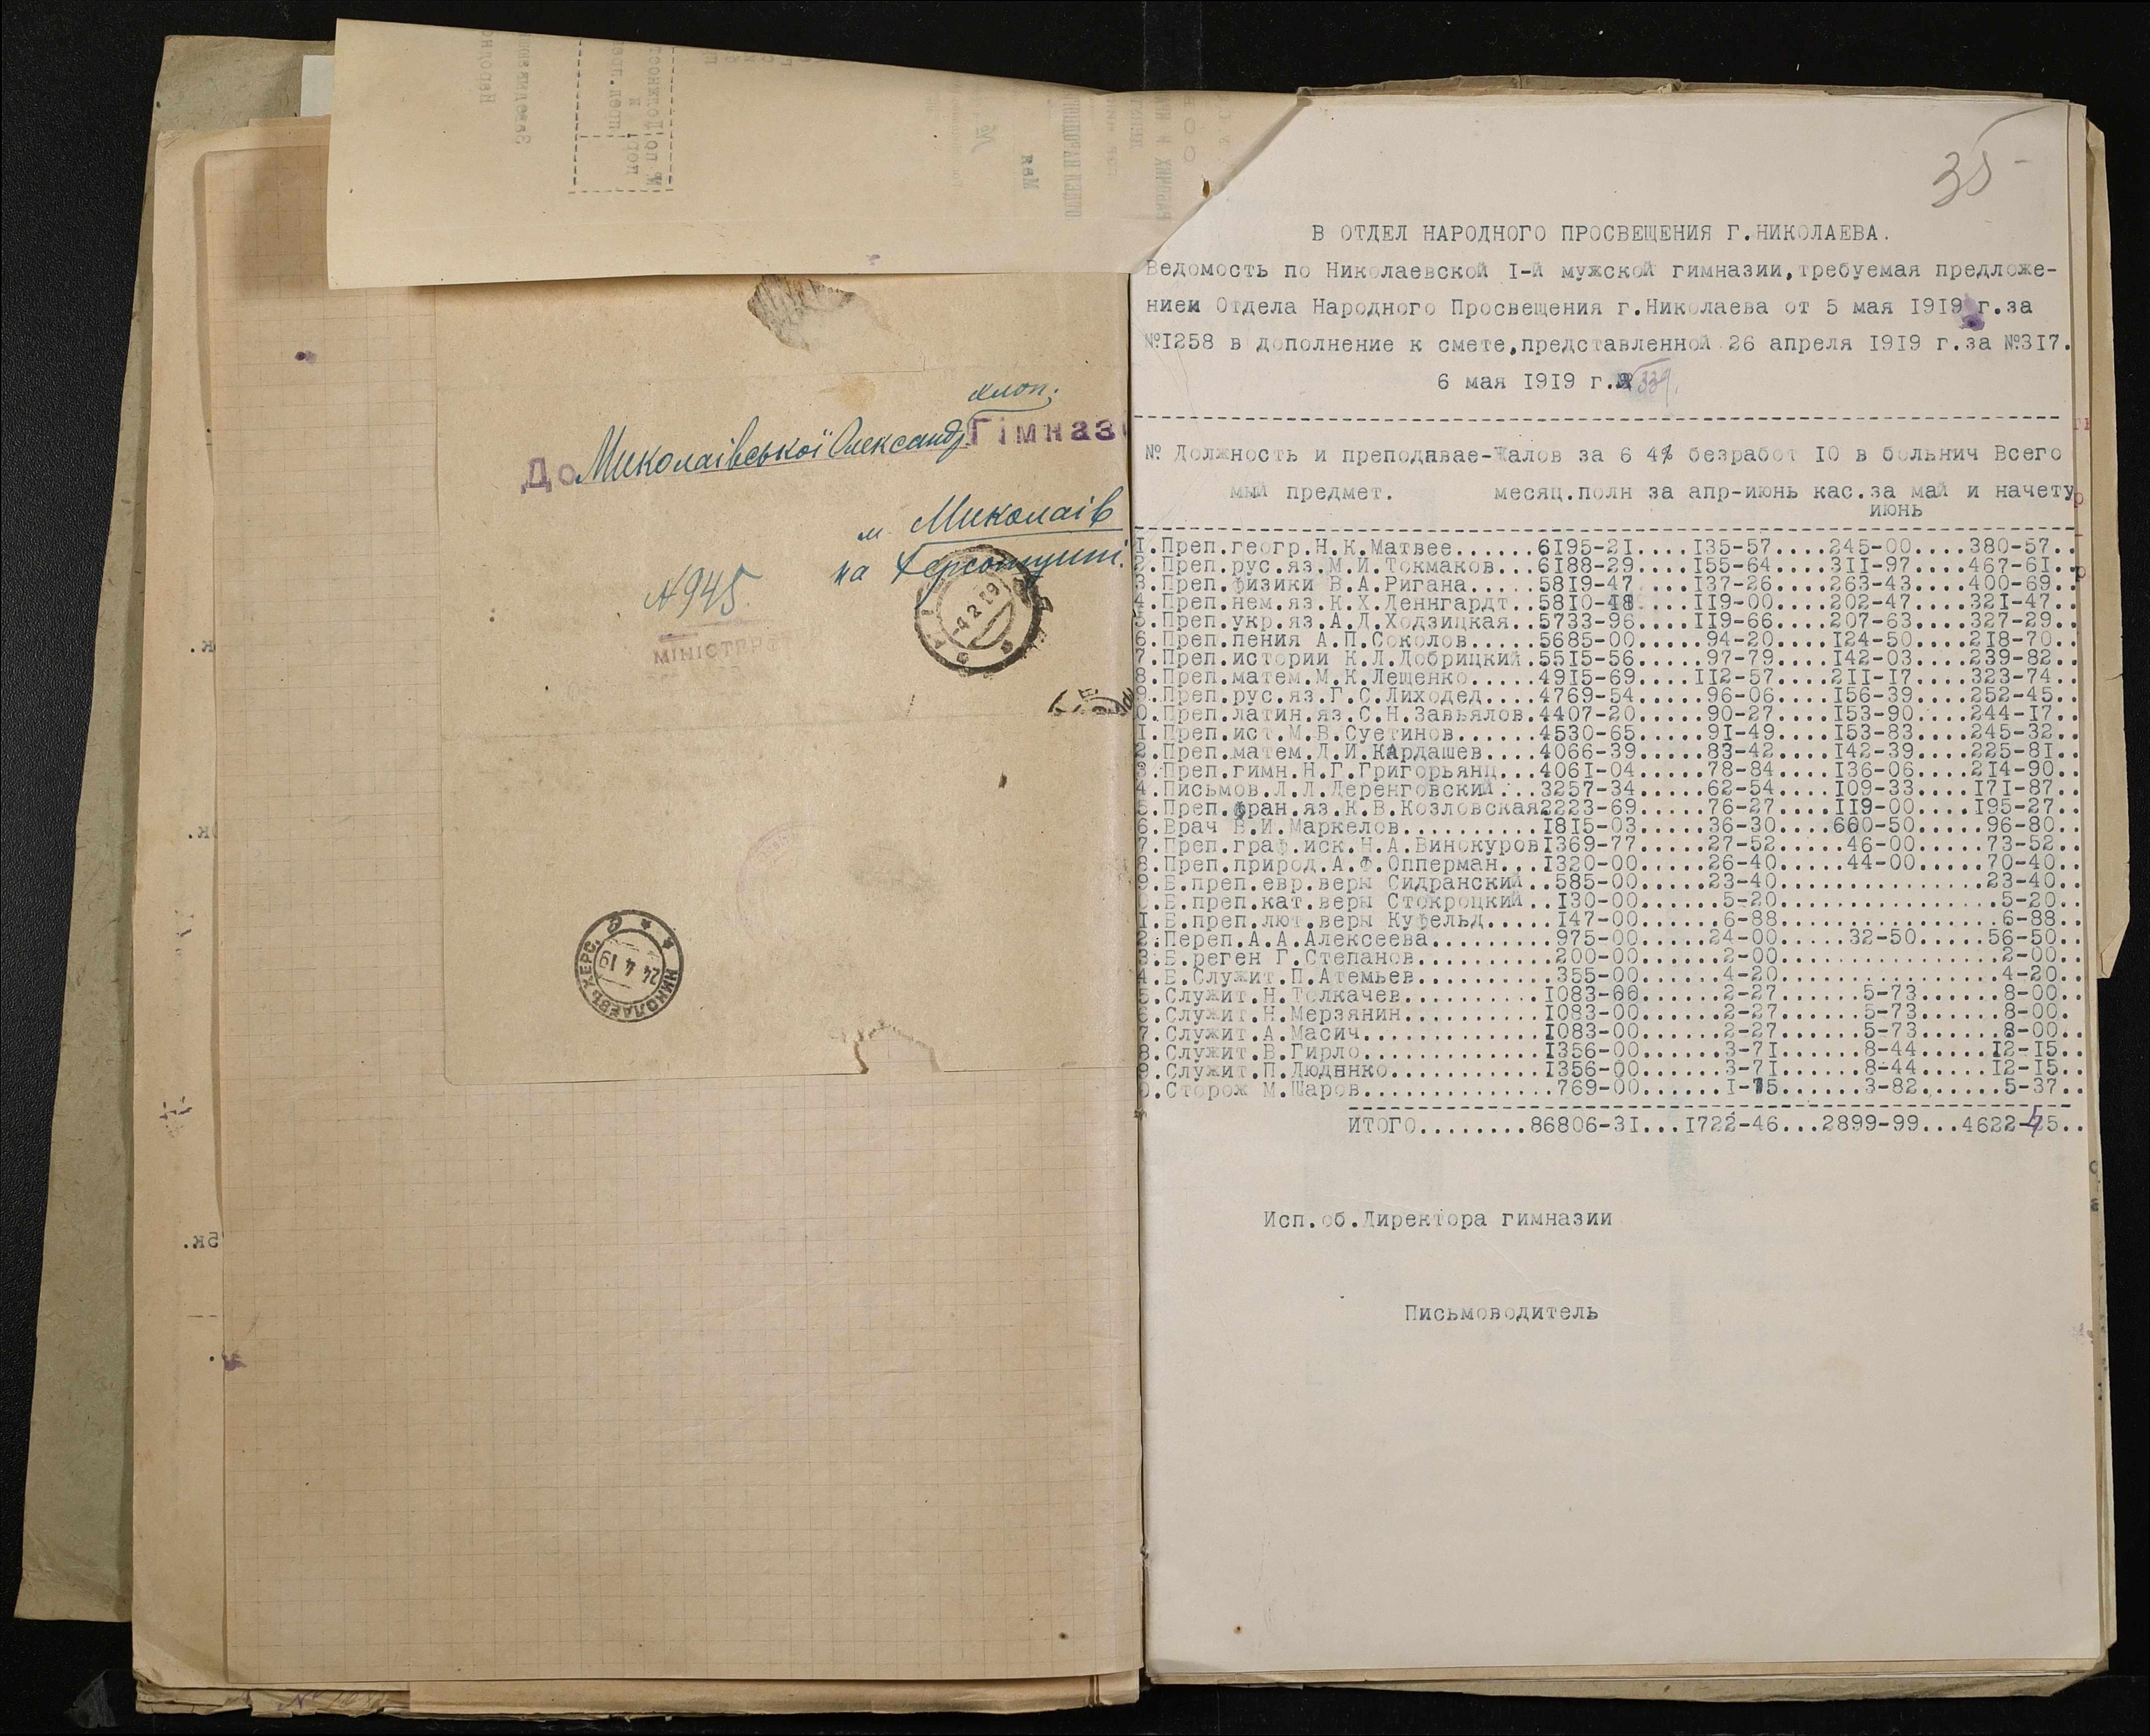 хлоп.
До Миколаївської Олександр. Гімназ
м. Миколаїв
на Херсонщині.
№945.
МІНІСТЕР
4 2 19
НИКОЛАЕВЪ ХЕРС.
24 4 19
35
В ОТДЕЛ НАРОДНОГО ПРОСВЕЩЕНИЯ Г.НИКОЛАЕВА.
Ведомость по Николаевской I-й мужской гимназии,требуемая предложе-
нием Отдела Народного Просвещения г.Николаева от 5 мая I9I9 г.за
№I258 в дополнение к смете,представленной 26 апреля I9I9 г.за №3I7.
6 мая I9I9 г.№ 339.
№ Должность и преподавае-Жалов за 6 4% безработ I0 в больнич Всего
мый предмет. месяц.полн за апр-июнь кас.за май и начету
июнь
1.Преп.геогр.Н.К.Матвее......6I95-2I....I35-57....245-00....380-57..
2.Преп.рус.яз.М.И.Токмаков...6I88-29....I55-64....3II-97....467-6I..
3.Преп.физики В.А.Ригана.....58I9-47....I37-26....263-43....400-69..
4.Преп.нем.яз.К.Х.Деннгардт..58I0-48....II9-00....202-47....32I-47..
5.Преп.укр.яз.А.Д.Ходзицкая..5733-96....II9-66....207-63....327-29..
6.Преп.пения А.П.Соколов.....5685-00.....94-20....I24-50....2I8-70..
7.Преп.истории К.Л.Добрицкий.55I5-56.....97-79....I42-03....239-82..
8.Преп.матем.М.К.Лещенко.....49I5-69....II2-57....2II-I7....323-74..
9.Преп.рус.яз.Г.С.Лиходед....4769-54.....96-06....I56-39....252-45..
0.Преп.латин.яз.С.Н.Завьялов.4407-20.....90-27....I53-90....244-I7..
I.Преп.ист.М.В.Суетинов......4530-65.....9I-49....I53-83....245-32..
2.Преп.матем.Д.И.КАрдашев....4066-39.....83-42....I42-39....225-8I..
3.Преп.гимн.Н.Г.Григорьянц...406I-04.....78-84....I36-06....2I4-90..
4.Письмов.Л.Л.Деренговский...3257-34.....62-54....I09-33....I7I-87..
5.Преп.фран.яз.К.В.Козловская2223-69.....76-27....II9-00....I95-27..
6.Врач В.И.Маркелов..........I8I5-03.....36-30....660-50.....96-80..
7.Преп.граф.иск.Н.А.ВинокуровI369-77.....27-52.....46-00.....73-52..
8.Преп.природ.А.Ф.Опперман...I320-00.....26-40.....44-00.....70-40..
9.Б.преп.евр.веры Сидранский..585-00.....23-40...............23-40..
0.Б.преп.кат.веры Стокроцкий..I30-00......5-20................5-20..
I.Б.преп.лют.веры Куфельд.....I47-00......6-88................6-88..
2.Переп.А.А.Алексеева.........975-00.....24-00.....32-50.....56-50..
3.Б.реген Г.Степанов..........200-00......2-00................2-00..
4.Б.Служит.П.Атемьев..........355-00......4-20................4-20..
5.Служит.Н.Толкачев..........I083-00......2-27......5-73......8-00..
6.Служит.Н.Мерзянин..........I083-00......2-27......5-73......8-00.
7.Служит.А.Масич.............I083-00......2-27......5-73......8-00..
8.Служит.В.Гирло.............I356-00......3-7I......8-44.....I2-I5..
9.Служит.П.Люднико...........I356-00......3-7I......8-44.....I2-I5..
0.Сторож М.Шаров..............769-00......I-75......3-82......5-37..
ИТОГО........86806-3I...I722-46...2899-99...4622-45..
Исп.об.Директора гимназии
Письмоводитель